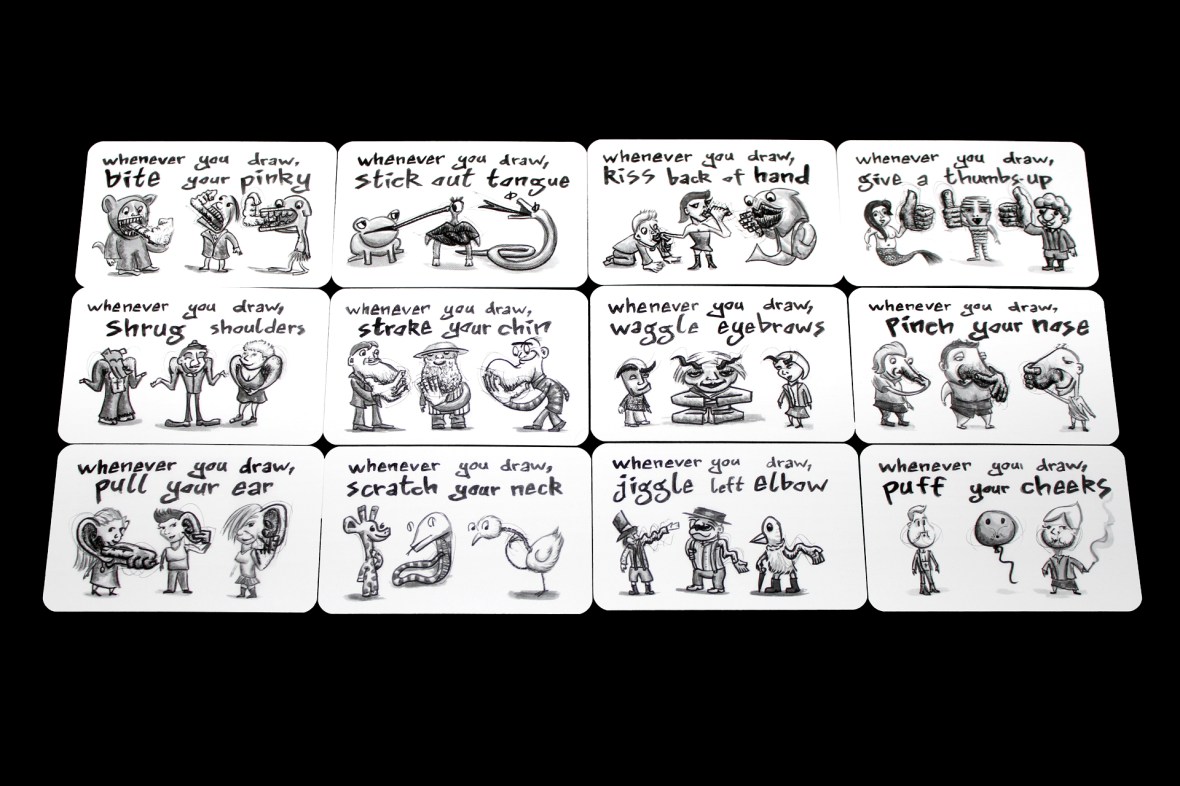 whenever you draw,
bite your pinky
whenever you draw,
stick out tongue
whenever you draw,
kiss back of hand
whenever you draw,
give a thumbs-up
whenever you draw,
shrug shoulders
whenever you draw,
stroke your chin
whenever you draw,
waggle eyebrows
whenever you draw,
pinch your nose
whenever you draw,
pull your ear
whenever you draw,
scratch your neck
whenever you draw,
jiggle left elbow
whenever you draw,
puff your cheeks